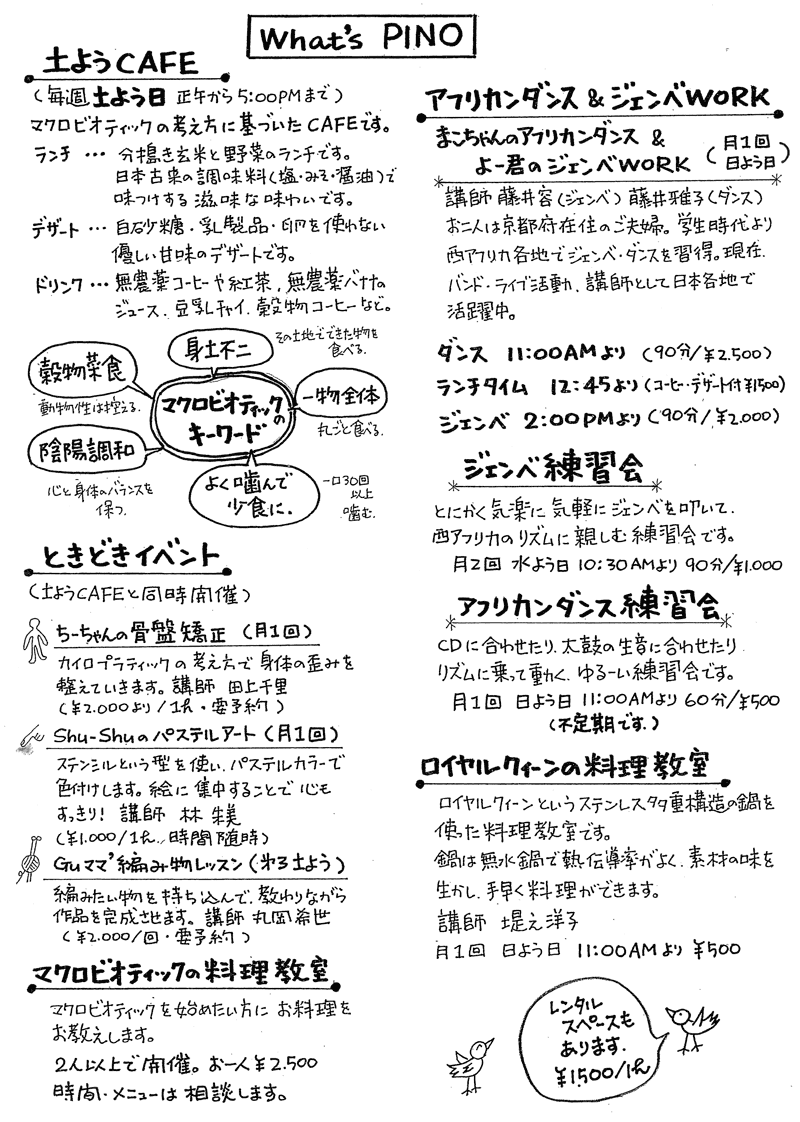 What's PINO
土ようCAFE
(毎週土よう日 正午から5:00PMまで)
マクロビオティックの考え方に基づいたCAFEです。
ランチ … 分搗き玄米と野菜のランチです。
日本古来の調味料(塩・みそ・醤油)で
味つけする滋味な味わいです。
デザート … 白砂糖・乳製品・卵を使わない
優しい甘味のデザートです。
ドリンク … 無農薬コーヒーや紅茶、無農薬バナナの
ジュース、豆乳チャイ、穀物コーヒーなど。
身土不二
その土地でできた物を
食べる。
穀物菜食
動物性は控える。
マクロビオティックの
キーワード
一物全体
丸ごと食べる。
陰陽調和
心と身体のバランスを
保つ。
よく噛んで
少食に。
一口30回
以上
噛む。
ときどきイベント
(土ようCAFEと同時開催)
ちーちゃんの骨盤矯正(月1回)
カイロプラティックの考え方で身体の歪みを
整えていきます。講師 田上千里
(¥2.000より/1h・要予約)
Shu-Shuのパステルアート(月1回)
ステンシルという型を使い、パステルカラーで
色付けします。絵に集中することで心も
すっきり! 講師 林 朱美
(¥1.000/1h、時間随時)
Guママ'編み物レッスン(第3土よう)
編みたい物を持ち込んで、教わりながら
作品を完成させます。講師 丸岡希世
(¥2.000/回・要予約)
マクロビオティックの料理教室
マクロビオティックを始めたい方にお料理を
お教えします。
2人以上で開催。お一人¥2.500
時間・メニューは相談します。
アフリカンダンス&ジェンベWORK
まこちゃんのアフリカンダンス &
よー君のジェンベWORK (月1回 日よう日)
講師 藤井容(ジェンベ) 藤井雅子(ダンス)
お二人は京都府在住のご夫婦。学生時代より
西アフリカ各地でジェンベ・ダンスを習得。現在、
バンド・ライブ活動、講師として日本各地で
活躍中。
ダンス 11:00AMより (90分/¥2.500)
ランチタイム 12:45より(コーヒー・デザート付¥1500)
ジェンベ 2:00PMより(90分/¥2.000)
ジェンベ練習会
とにかく気楽に気軽にジェンベを叩いて、
西アフリカのリズムに親しむ練習会です。
月2回 水よう日 10:30AMより 90分/¥1.000
アフリカンダンス練習会
CDに合わせたり、太鼓の生音に合わせたり
リズムに乗って動く、ゆるーい練習会です。
月1回 日よう日 11:00AMより 60分/¥500
(不定期です。)
ロイヤルクィーンの料理教室
ロイヤルクィーンというステンレス多重構造の鍋を
使った料理教室です。
鍋は無水鍋で熱伝導率がよく、素材の味を
生かし、手早く料理ができます。
講師 堤之洋子
月1回 日よう日 11:00AMより ¥500
レンタル
スペースも
あります。
¥1500/1h